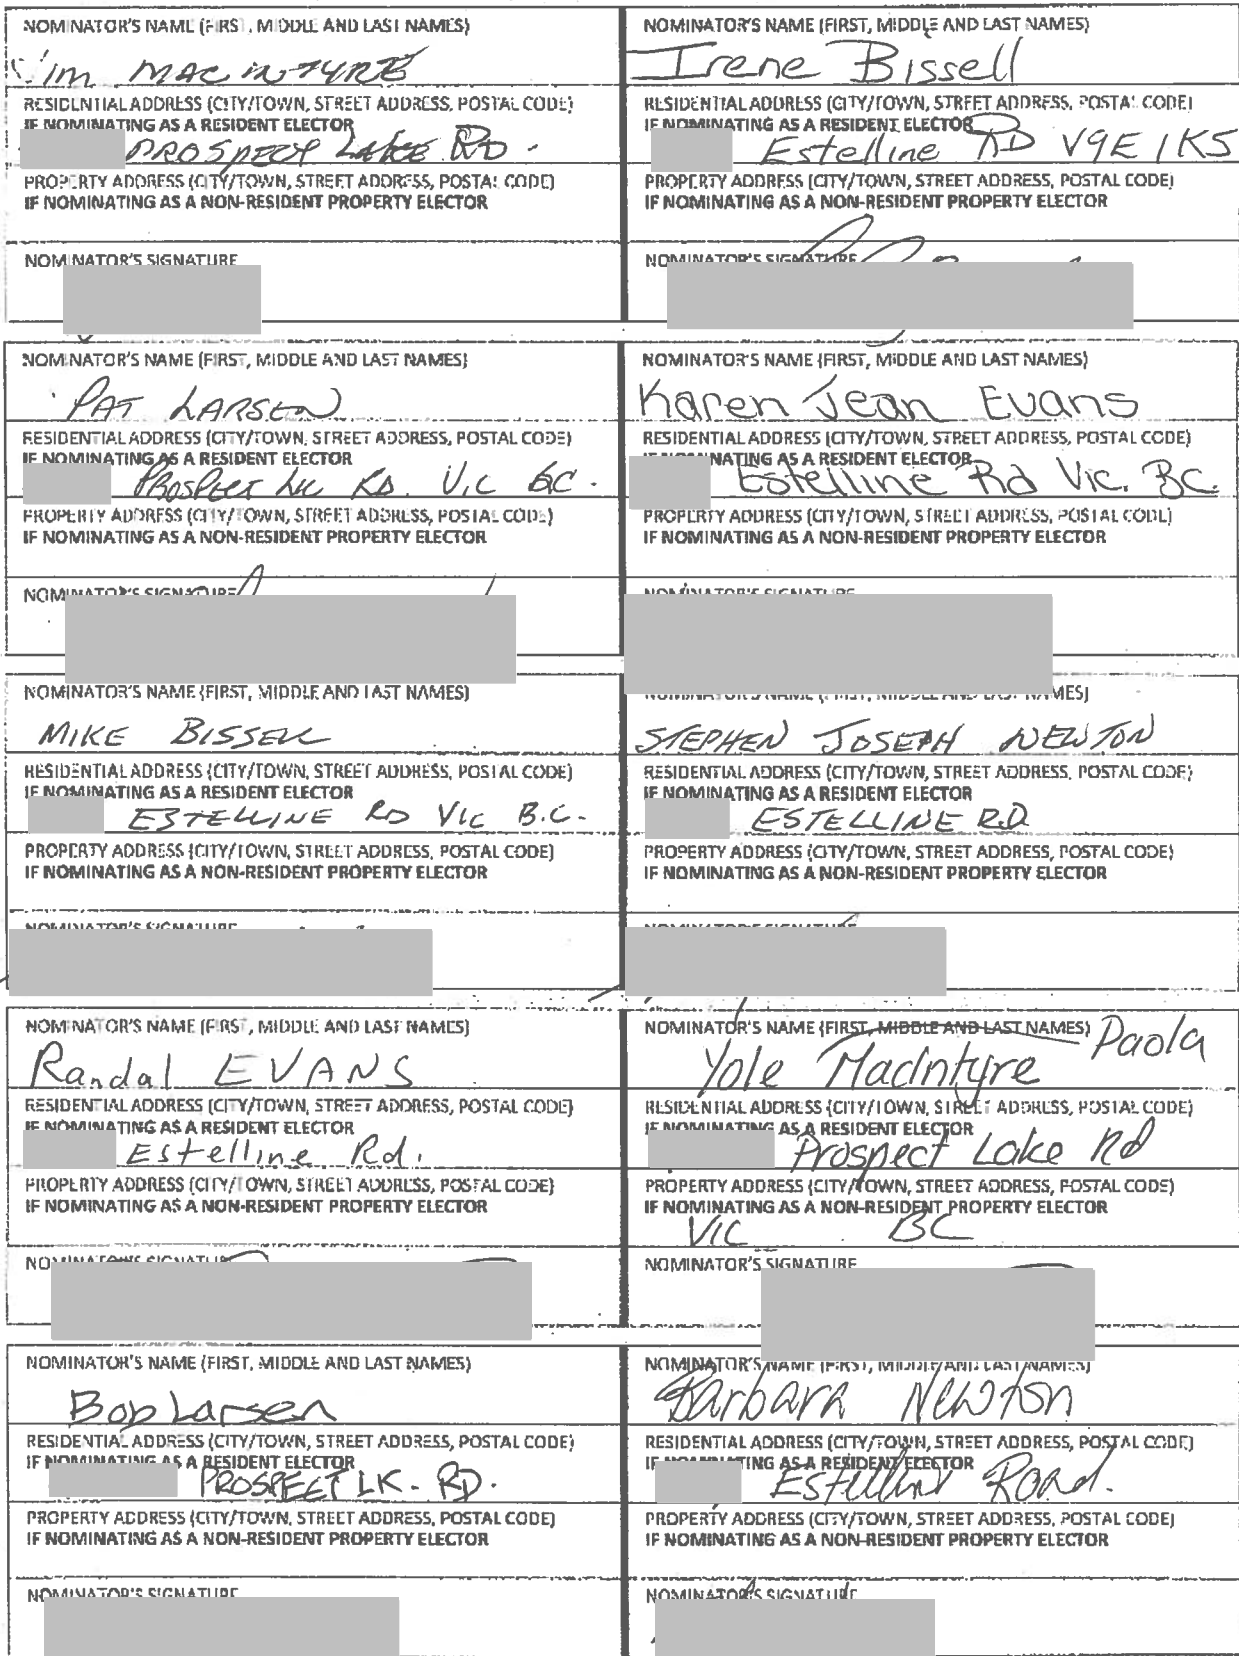 NOMINATOR'S NAME (FIRST, MIDDLE AND LAST NAMES)
Jim MACINTYRE
RESIDENTIAL ADDRESS (CITY/TOWN, STREET ADDRESS, POSTAL CODE)
IF NOMINATING AS A RESIDENT ELECTOR
PROSPECT LAKE RD.
PROPERTY ADDRESS (CITY/TOWN, STREET ADDRESS, POSTAL CODE)
IF NOMINATING AS A NON-RESIDENT PROPERTY ELECTOR
NOMINATOR'S SIGNATURE
NOMINATOR'S NAME (FIRST, MIDDLE AND LAST NAMES)
Irene Bissell
RESIDENTIAL ADDRESS (CITY/TOWN, STREET ADDRESS, POSTAL CODE)
IF NOMINATING AS A RESIDENT ELECTOR
Estelline RD V9E 1K5
PROPERTY ADDRESS (CITY/TOWN, STREET ADDRESS, POSTAL CODE)
IF NOMINATING AS A NON-RESIDENT PROPERTY ELECTOR
NOMINATOR'S SIGNATURE
NOMINATOR'S NAME (FIRST, MIDDLE AND LAST NAMES)
PAT LARSEN
RESIDENTIAL ADDRESS (CITY/TOWN, STREET ADDRESS, POSTAL CODE)
IF NOMINATING AS A RESIDENT ELECTOR
PROSPECT LK RD. VIC BC.
PROPERTY ADDRESS (CITY/TOWN, STREET ADDRESS, POSTAL CODE)
IF NOMINATING AS A NON-RESIDENT PROPERTY ELECTOR
NOMINATOR'S SIGNATURE
NOMINATOR'S NAME (FIRST, MIDDLE AND LAST NAMES)
Karen Jean Evans
RESIDENTIAL ADDRESS (CITY/TOWN, STREET ADDRESS, POSTAL CODE)
IF NOMINATING AS A RESIDENT ELECTOR
Estelline Rd Vic. BC.
PROPERTY ADDRESS (CITY/TOWN, STREET ADDRESS, POSTAL CODE)
IF NOMINATING AS A NON-RESIDENT PROPERTY ELECTOR
NOMINATOR'S SIGNATURE
NOMINATOR'S NAME (FIRST, MIDDLE AND LAST NAMES)
MIKE BISSELL
RESIDENTIAL ADDRESS (CITY/TOWN, STREET ADDRESS, POSTAL CODE)
IF NOMINATING AS A RESIDENT ELECTOR
ESTELLINE RD VIC B.C.
PROPERTY ADDRESS (CITY/TOWN, STREET ADDRESS, POSTAL CODE)
IF NOMINATING AS A NON-RESIDENT PROPERTY ELECTOR
NOMINATOR'S SIGNATURE
NOMINATOR'S NAME (FIRST, MIDDLE AND LAST NAMES)
STEPHEN JOSEPH NEWTON
RESIDENTIAL ADDRESS (CITY/TOWN, STREET ADDRESS, POSTAL CODE)
IF NOMINATING AS A RESIDENT ELECTOR
ESTELLINE RD
PROPERTY ADDRESS (CITY/TOWN, STREET ADDRESS, POSTAL CODE)
IF NOMINATING AS A NON-RESIDENT PROPERTY ELECTOR
NOMINATOR'S SIGNATURE
NOMINATOR'S NAME (FIRST, MIDDLE AND LAST NAMES)
Randal EVANS
RESIDENTIAL ADDRESS (CITY/TOWN, STREET ADDRESS, POSTAL CODE)
IF NOMINATING AS A RESIDENT ELECTOR
Estelline Rd.
PROPERTY ADDRESS (CITY/TOWN, STREET ADDRESS, POSTAL CODE)
IF NOMINATING AS A NON-RESIDENT PROPERTY ELECTOR
NOMINATOR'S SIGNATURE
NOMINATOR'S NAME (FIRST, MIDDLE AND LAST NAMES) Paola
Yole MacIntyre
RESIDENTIAL ADDRESS (CITY/TOWN, STREET ADDRESS, POSTAL CODE)
IF NOMINATING AS A RESIDENT ELECTOR
Prospect Lake Rd
PROPERTY ADDRESS (CITY/TOWN, STREET ADDRESS, POSTAL CODE)
IF NOMINATING AS A NON-RESIDENT PROPERTY ELECTOR
VIC BC
NOMINATOR'S SIGNATURE
NOMINATOR'S NAME (FIRST, MIDDLE AND LAST NAMES)
Bob Larsen
RESIDENTIAL ADDRESS (CITY/TOWN, STREET ADDRESS, POSTAL CODE)
IF NOMINATING AS A RESIDENT ELECTOR
PROSPECT LK. RD.
PROPERTY ADDRESS (CITY/TOWN, STREET ADDRESS, POSTAL CODE)
IF NOMINATING AS A NON-RESIDENT PROPERTY ELECTOR
NOMINATOR'S SIGNATURE
NOMINATOR'S NAME (FIRST, MIDDLE AND LAST NAMES)
Barbara Newton
RESIDENTIAL ADDRESS (CITY/TOWN, STREET ADDRESS, POSTAL CODE)
IF NOMINATING AS A RESIDENT ELECTOR
Estelline Road.
PROPERTY ADDRESS (CITY/TOWN, STREET ADDRESS, POSTAL CODE)
IF NOMINATING AS A NON-RESIDENT PROPERTY ELECTOR
NOMINATOR'S SIGNATURE